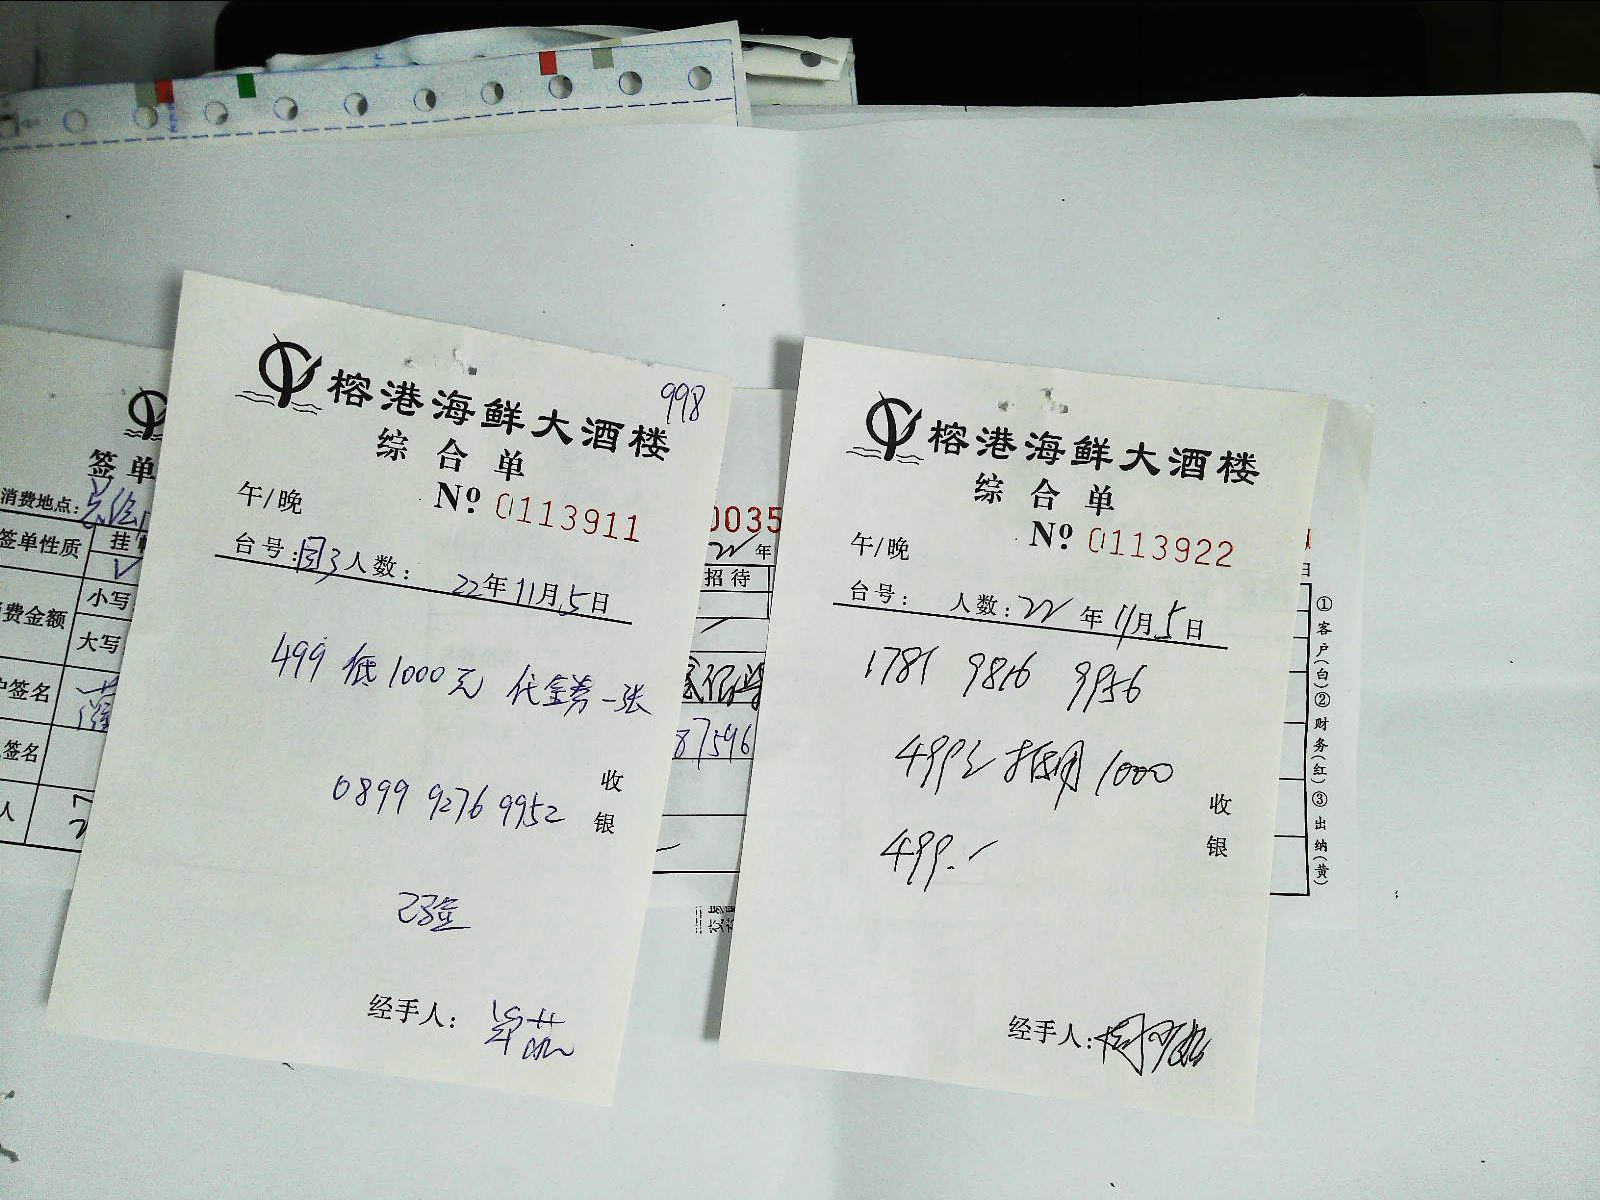 998
榕港海鲜大酒楼
综合单
午/晚
№ 0113911
台号: 团3 人数: 22年11月5日
499 低1000元 代金券一张
0899 9276 9952
收银
经手人:
榕港海鲜大酒楼
综合单
午/晚
№ 0113922
台号: 人数: 22年11月5日
1781 9816 9956
499元 抵用 1000
499.-
收银
经手人:
签单
消费地点:
签单性质 挂
费金额 小写
大写
签名
签名
人
0035
22年
招待
87596
日
①客户(白)②财务(红)③出纳(黄)